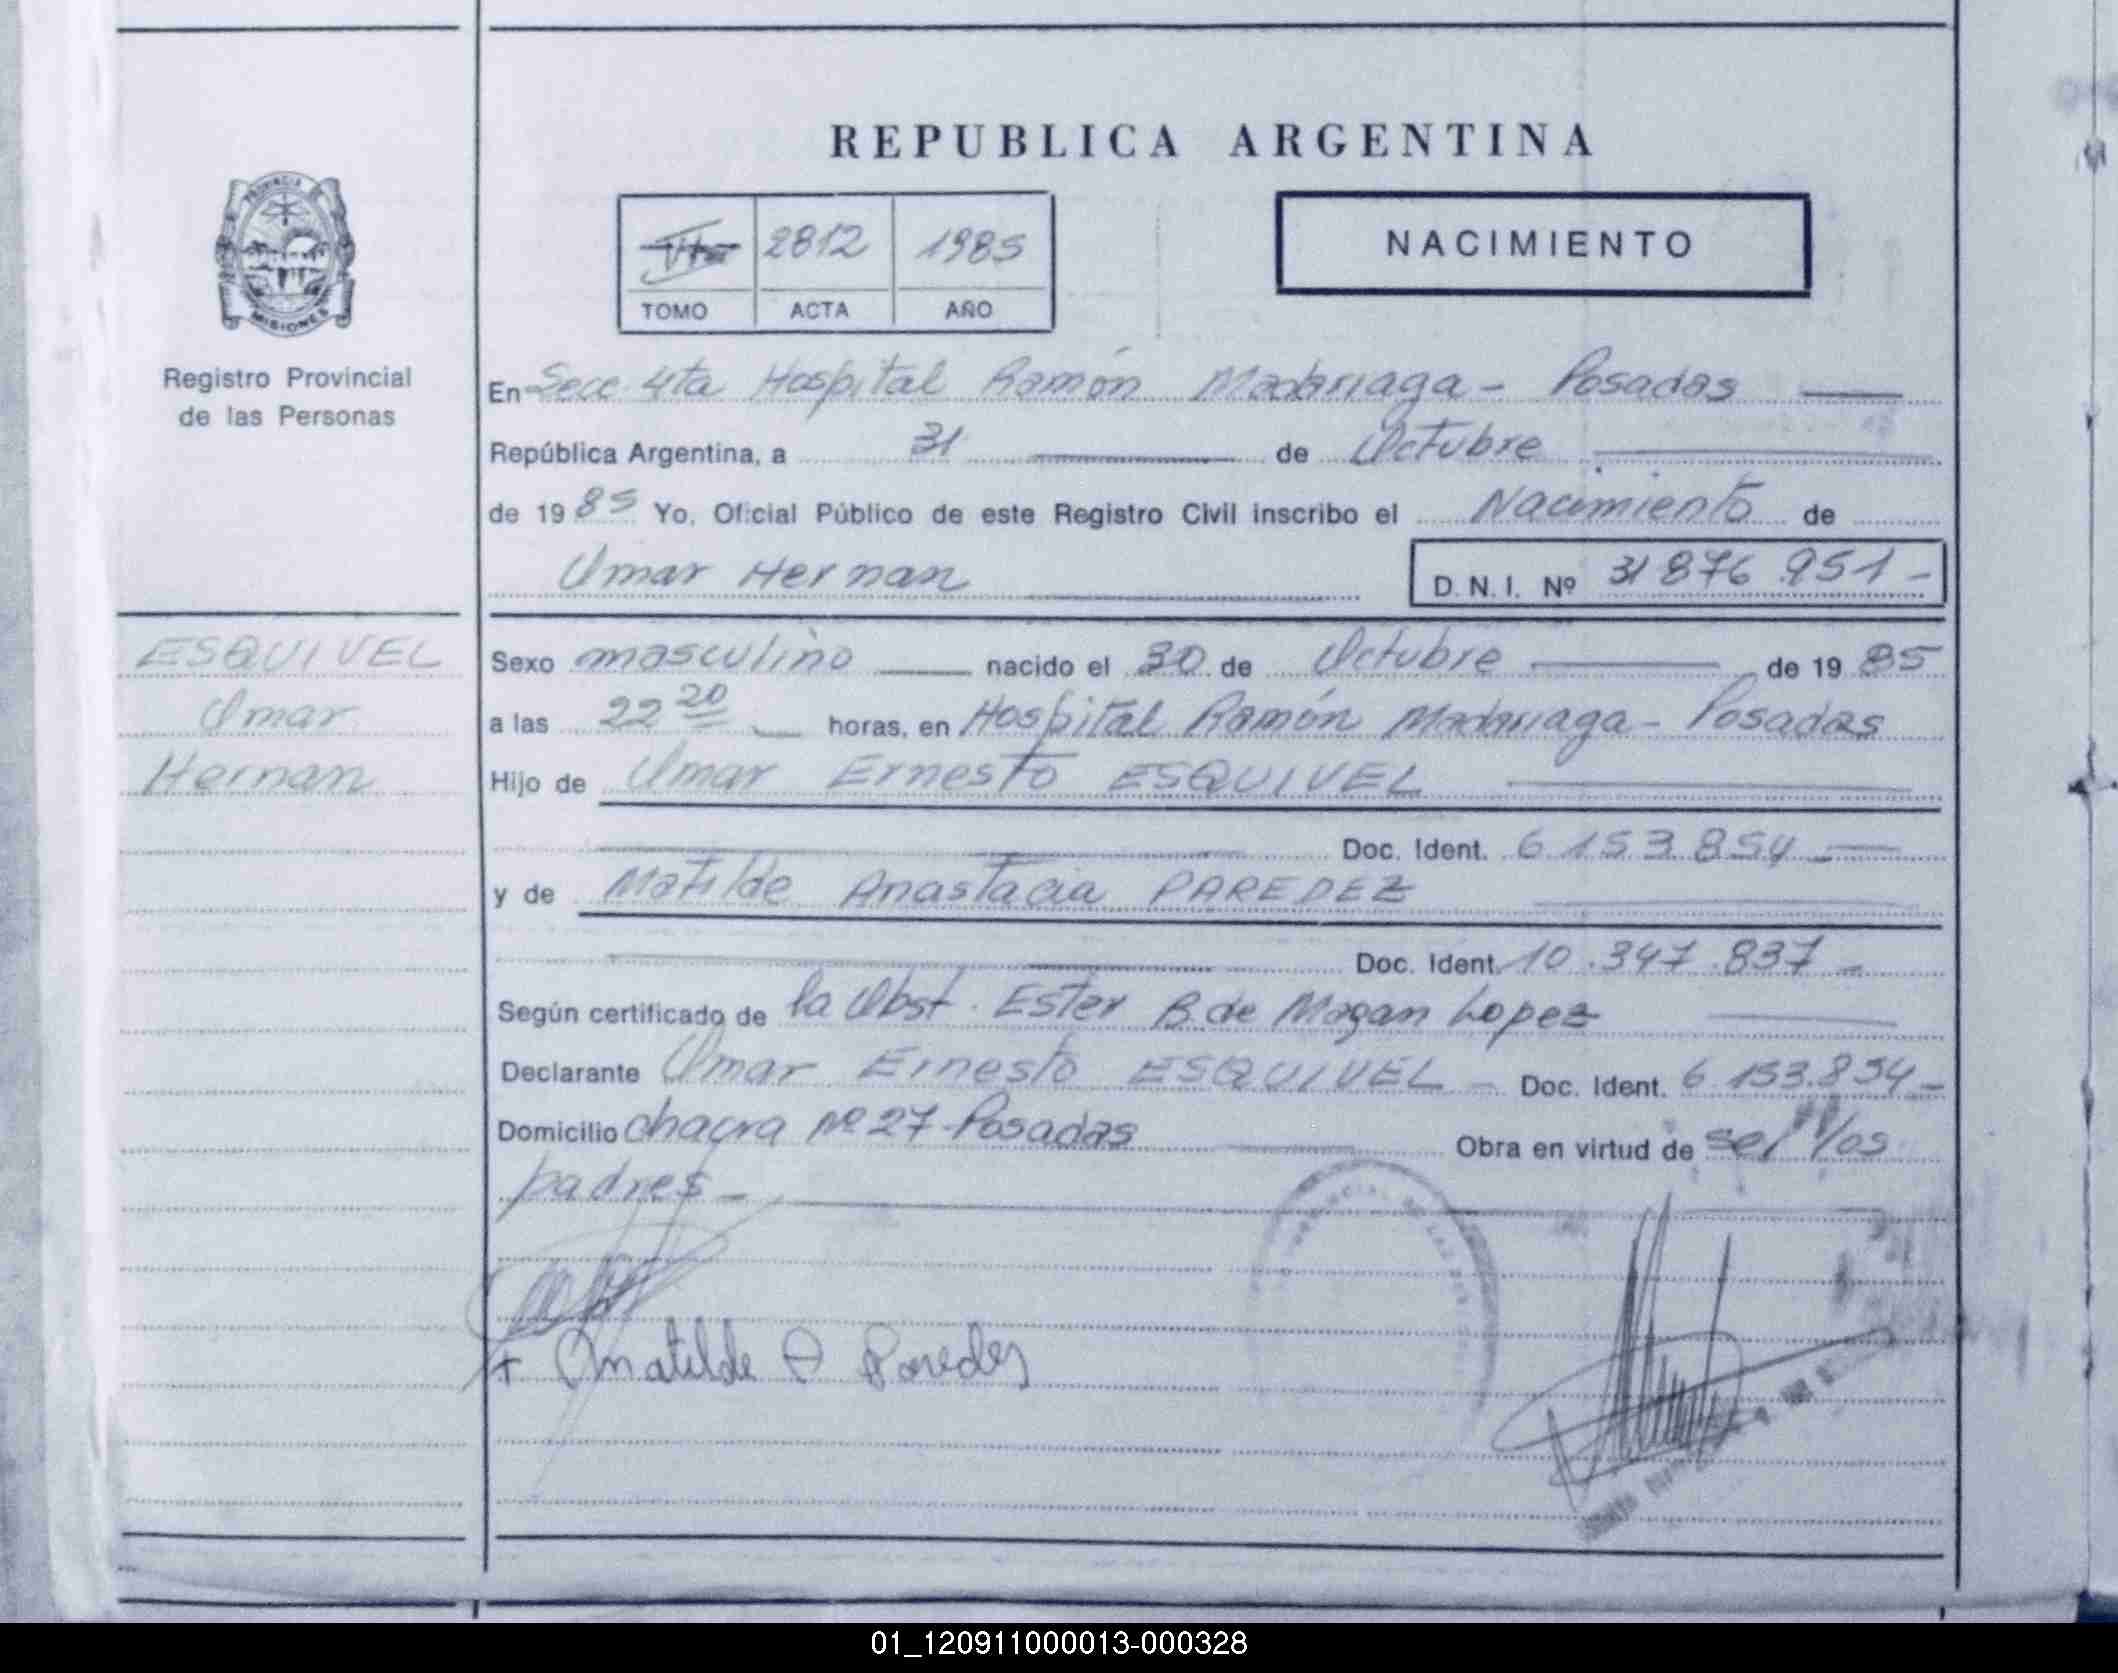 REPUBLICA ARGENTINA
PROVINCIA
MISIONES
2812 1985
TOMO ACTA AÑO
NACIMIENTO
Registro Provincial
de las Personas
En Secc 4ta Hospital Ramón Madariaga - Posadas
República Argentina, a 31 de Octubre
de 1985 Yo, Oficial Público de este Registro Civil inscribo el Nacimiento de
Omar Hernan D.N.I. Nº 31 876.951 -
ESQUIVEL
Omar
Hernan
Sexo masculino nacido el 30 de Octubre de 1985
a las 22 20 horas, en Hospital Ramón Madariaga - Posadas
Hijo de Omar Ernesto ESQUIVEL
Doc. Ident. 6.153.854 -
y de Matilde Anastacia PAREDEZ
Doc. Ident. 10.347.837 -
Según certificado de la Obst. Ester B. de Magan Lopez
Declarante Omar Ernesto ESQUIVEL - Doc. Ident. 6.153.854 -
Domicilio chacra Nº 27 - Posadas Obra en virtud de ser los
padres -
+ Matilde A Paredes
01_120911000013-000328